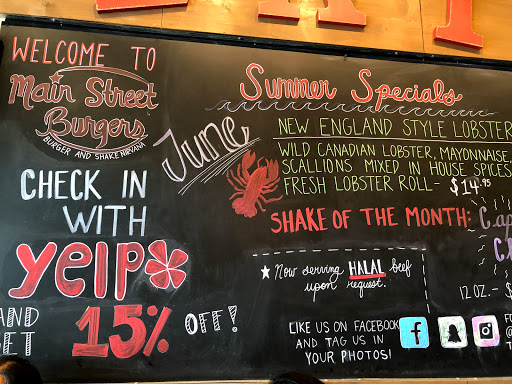 WELCOME TO
Main Street
Burgers
BURGER AND SHAKE NIRVANA
CHECK IN
WITH
yelp
AND
GET
15% OFF!
June
Summer Specials
NEW ENGLAND STYLE LOBSTER
WILD CANADIAN LOBSTER, MAYONNAISE,
SCALLIONS MIXED IN HOUSE SPICES
FRESH LOBSTER ROLL- $14.95
SHAKE OF THE MONTH:
12 OZ.- $
★ Now serving HALAL beef
upon request.
LIKE US ON FACEBOOK
AND TAG US IN
YOUR PHOTOS!
f